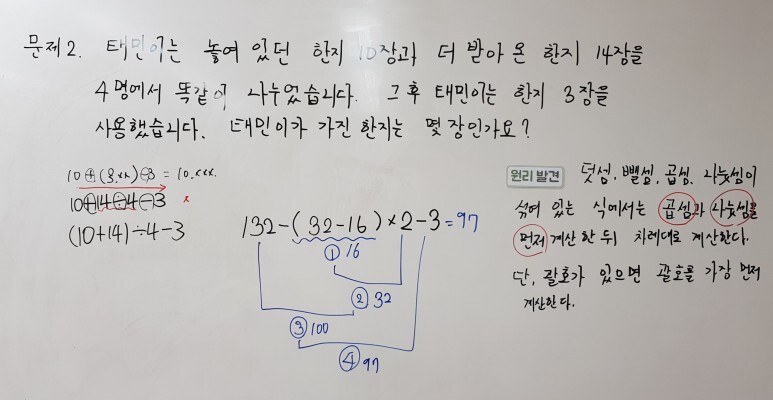 문제2. 태민이는 놓여 있던 한지 10장과 더 받아 온 한지 14장을
4명에서 똑같이 나누었습니다. 그 후 태민이는 한지 3장을
사용했습니다. 태민이가 가진 한지는 몇 장인가요?
10+(3.xx)-3 = 10.xxx.
10+14÷4-3 x
(10+14)÷4-3
132-(32-16)×2-3=97
① 16
② 32
③ 100
④ 97
원리 발견 덧셈, 뺄셈, 곱셈, 나눗셈이
섞여 있는 식에서는 곱셈과 나눗셈을
먼저 계산한 뒤 차례대로 계산한다.
단, 괄호가 있으면 괄호를 가장 먼저
계산한다.